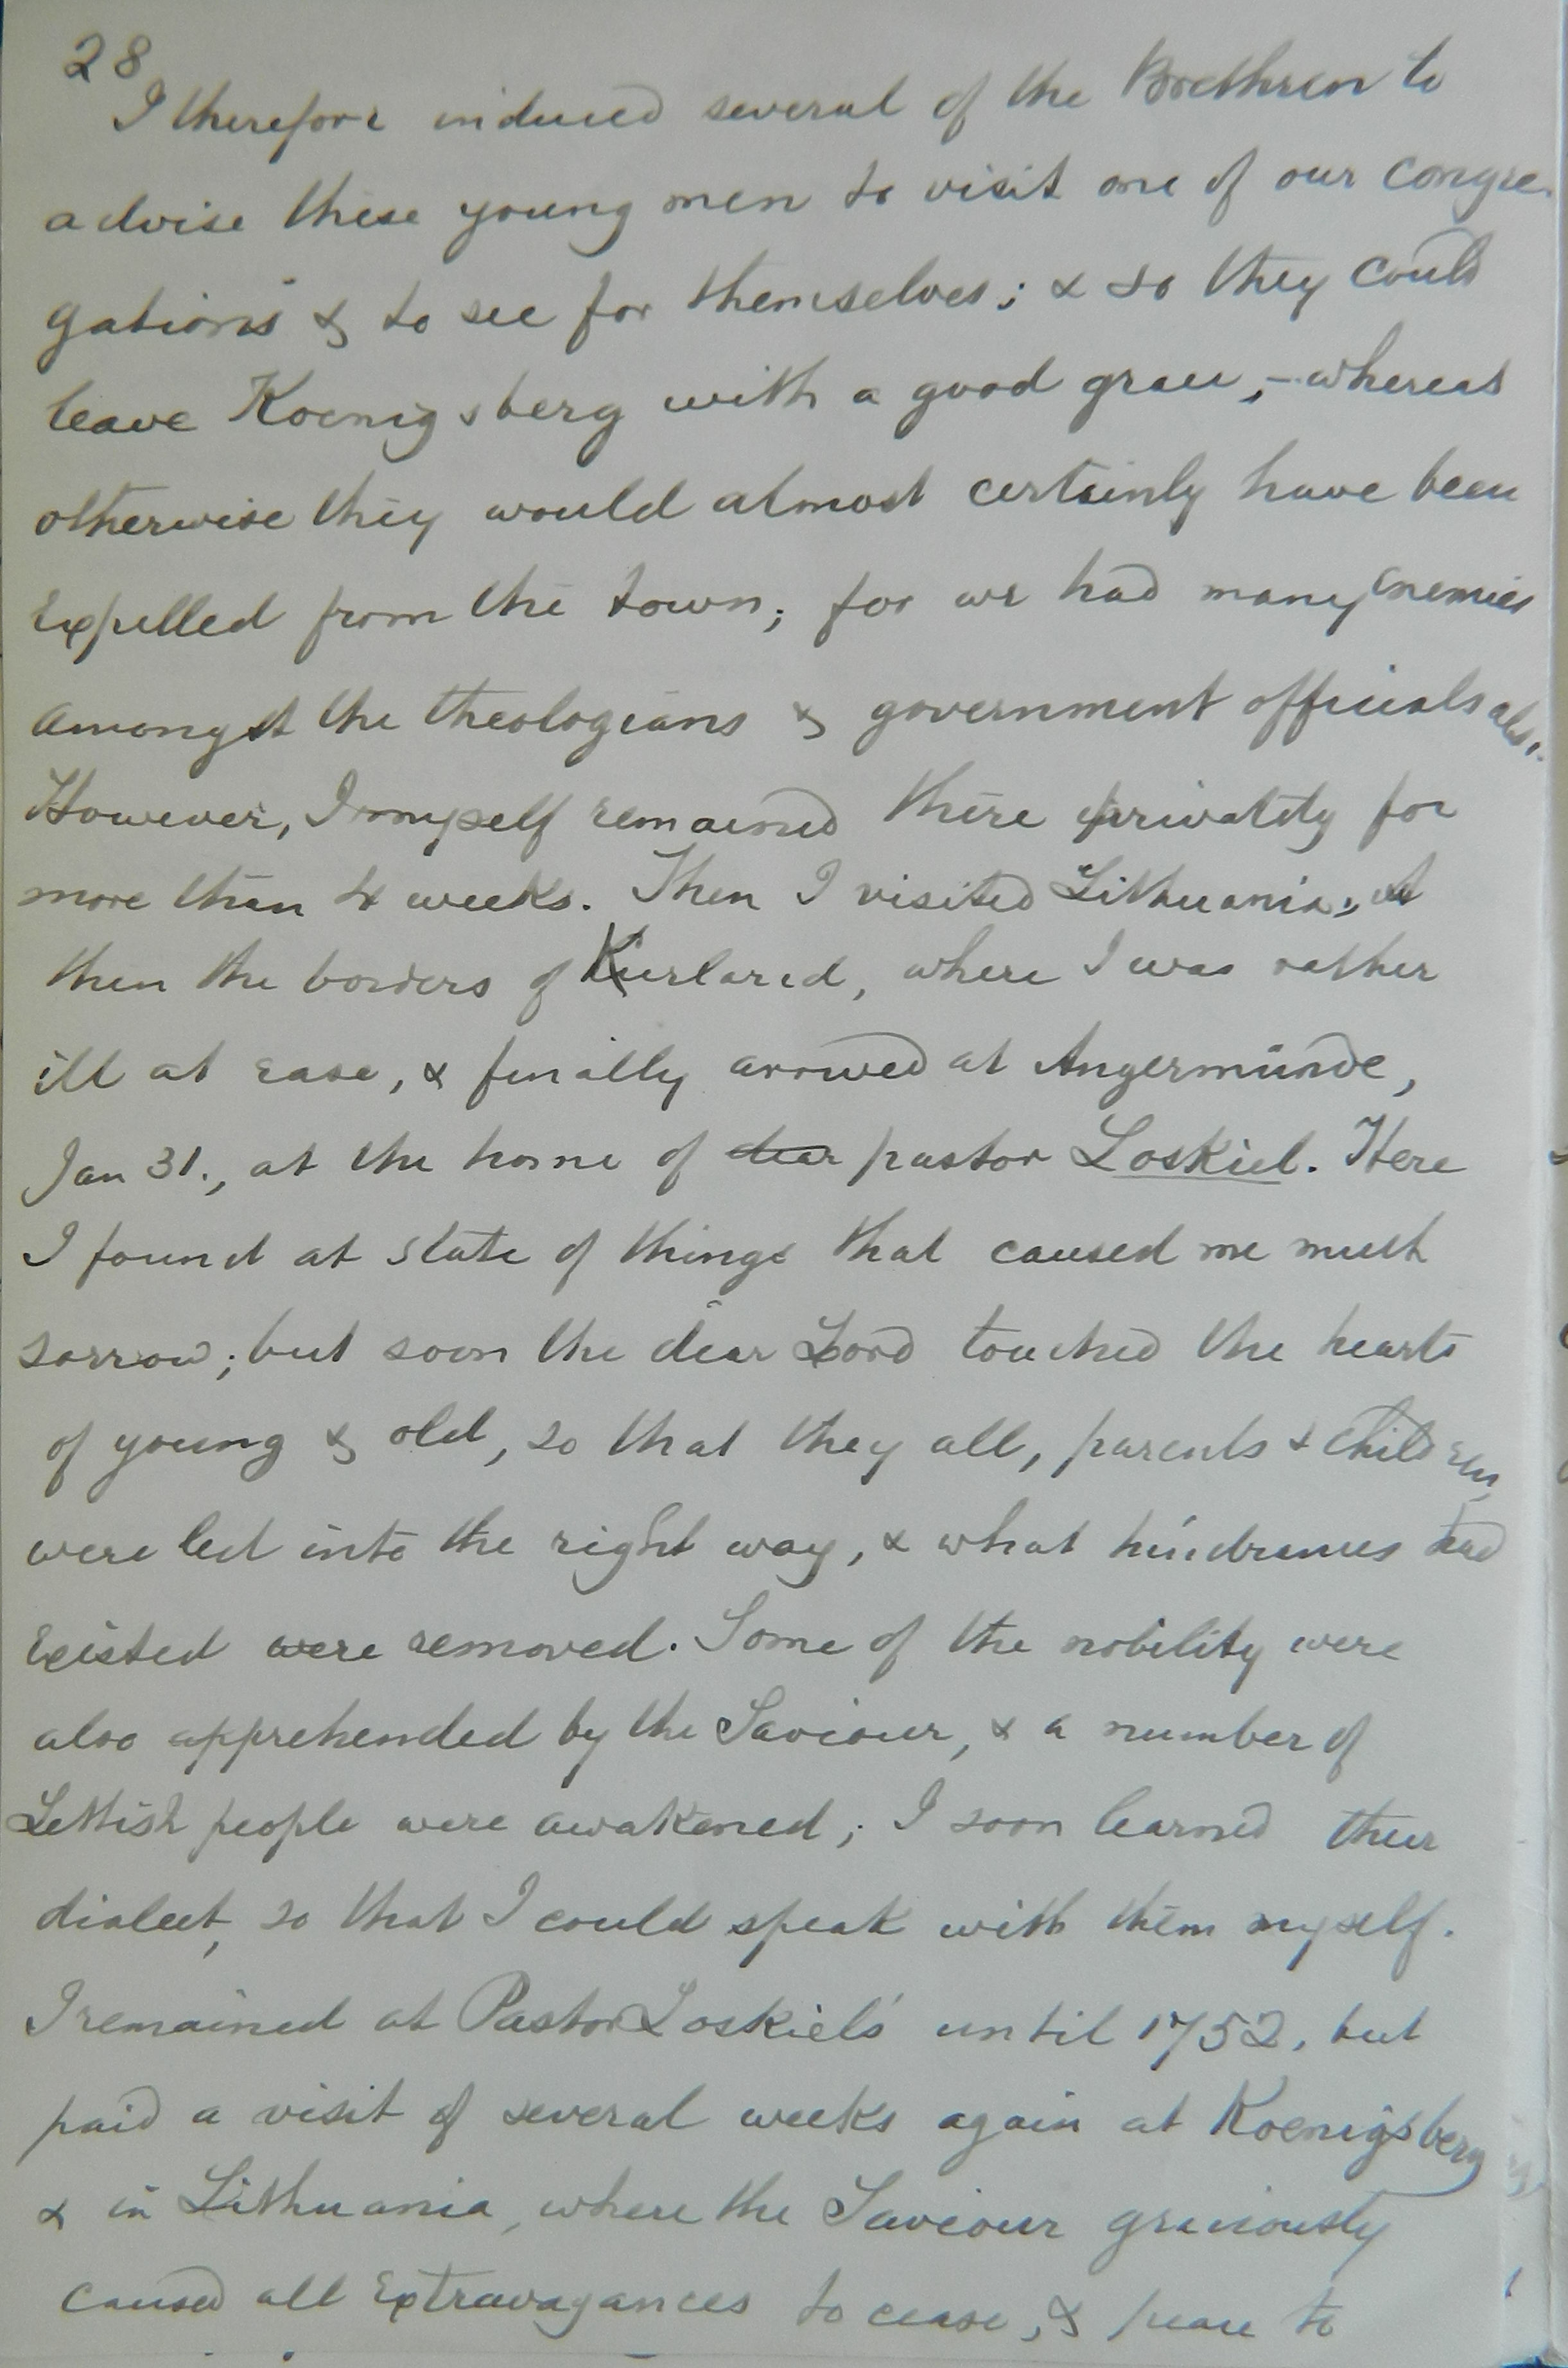 28
I therefore induced several of the Brethren to
advise these young men to visit one of our congre-
gations & to see for themselves; & so they could
leave Koenigsberg with a good grace, - whereas
otherwise they would almost certainly have been
expelled from the town; for we had many enemies
amongst the theologians & government officials also.
However, I myself remained there privately for
more than 4 weeks. Then I visited Lithuania,
then the borders of Kurland, where I was rather
ill at ease, & finally arrived at Angermünde,
Jan 31., at the home of dear pastor Loskiel. Here
I found at state of things that caused me much
sorrow; but soon the dear Lord touched the hearts
of young & old, so that they all, parents & children,
were led into the right way, & what hindrances had
existed were removed. Some of the nobility were
also apprehended by the Saviour, & a number of
Lettish people were awakened; I soon learned their
dialect, so that I could speak with them myself.
I remained at Pastor Loskiel's until 1752, but
paid a visit of several weeks again at Koenigsberg
& in Lithuania, where the Saviour graciously
caused all extravagances to cease, & peace to